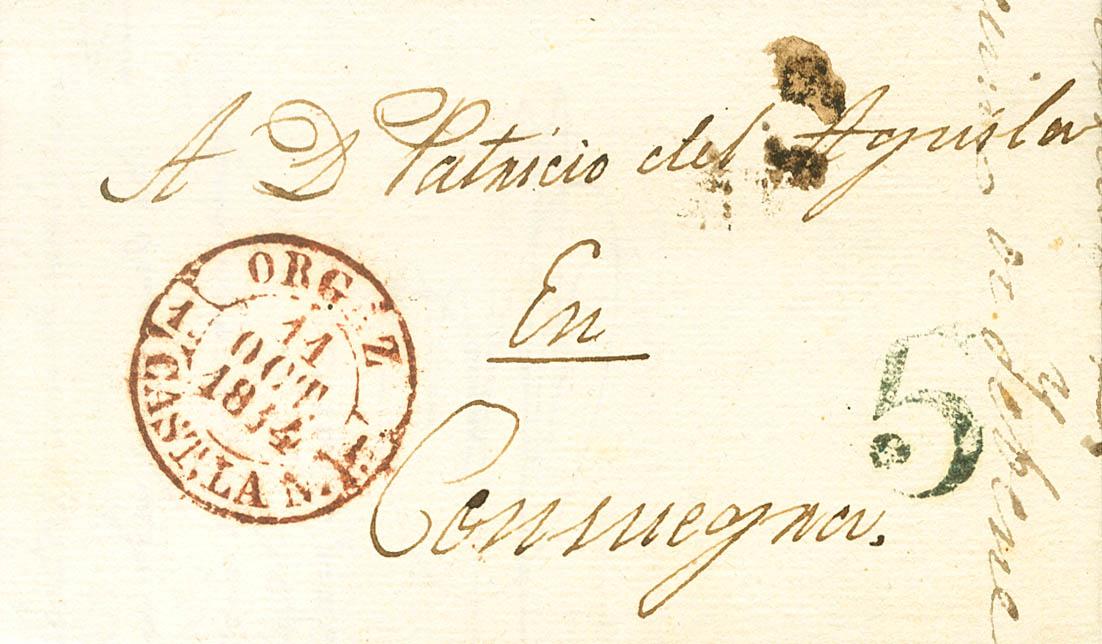 A D Patricio del Aguila
En
Consuegra.
ORGAZ
11
OCT
1844
CAST. LA N.
5